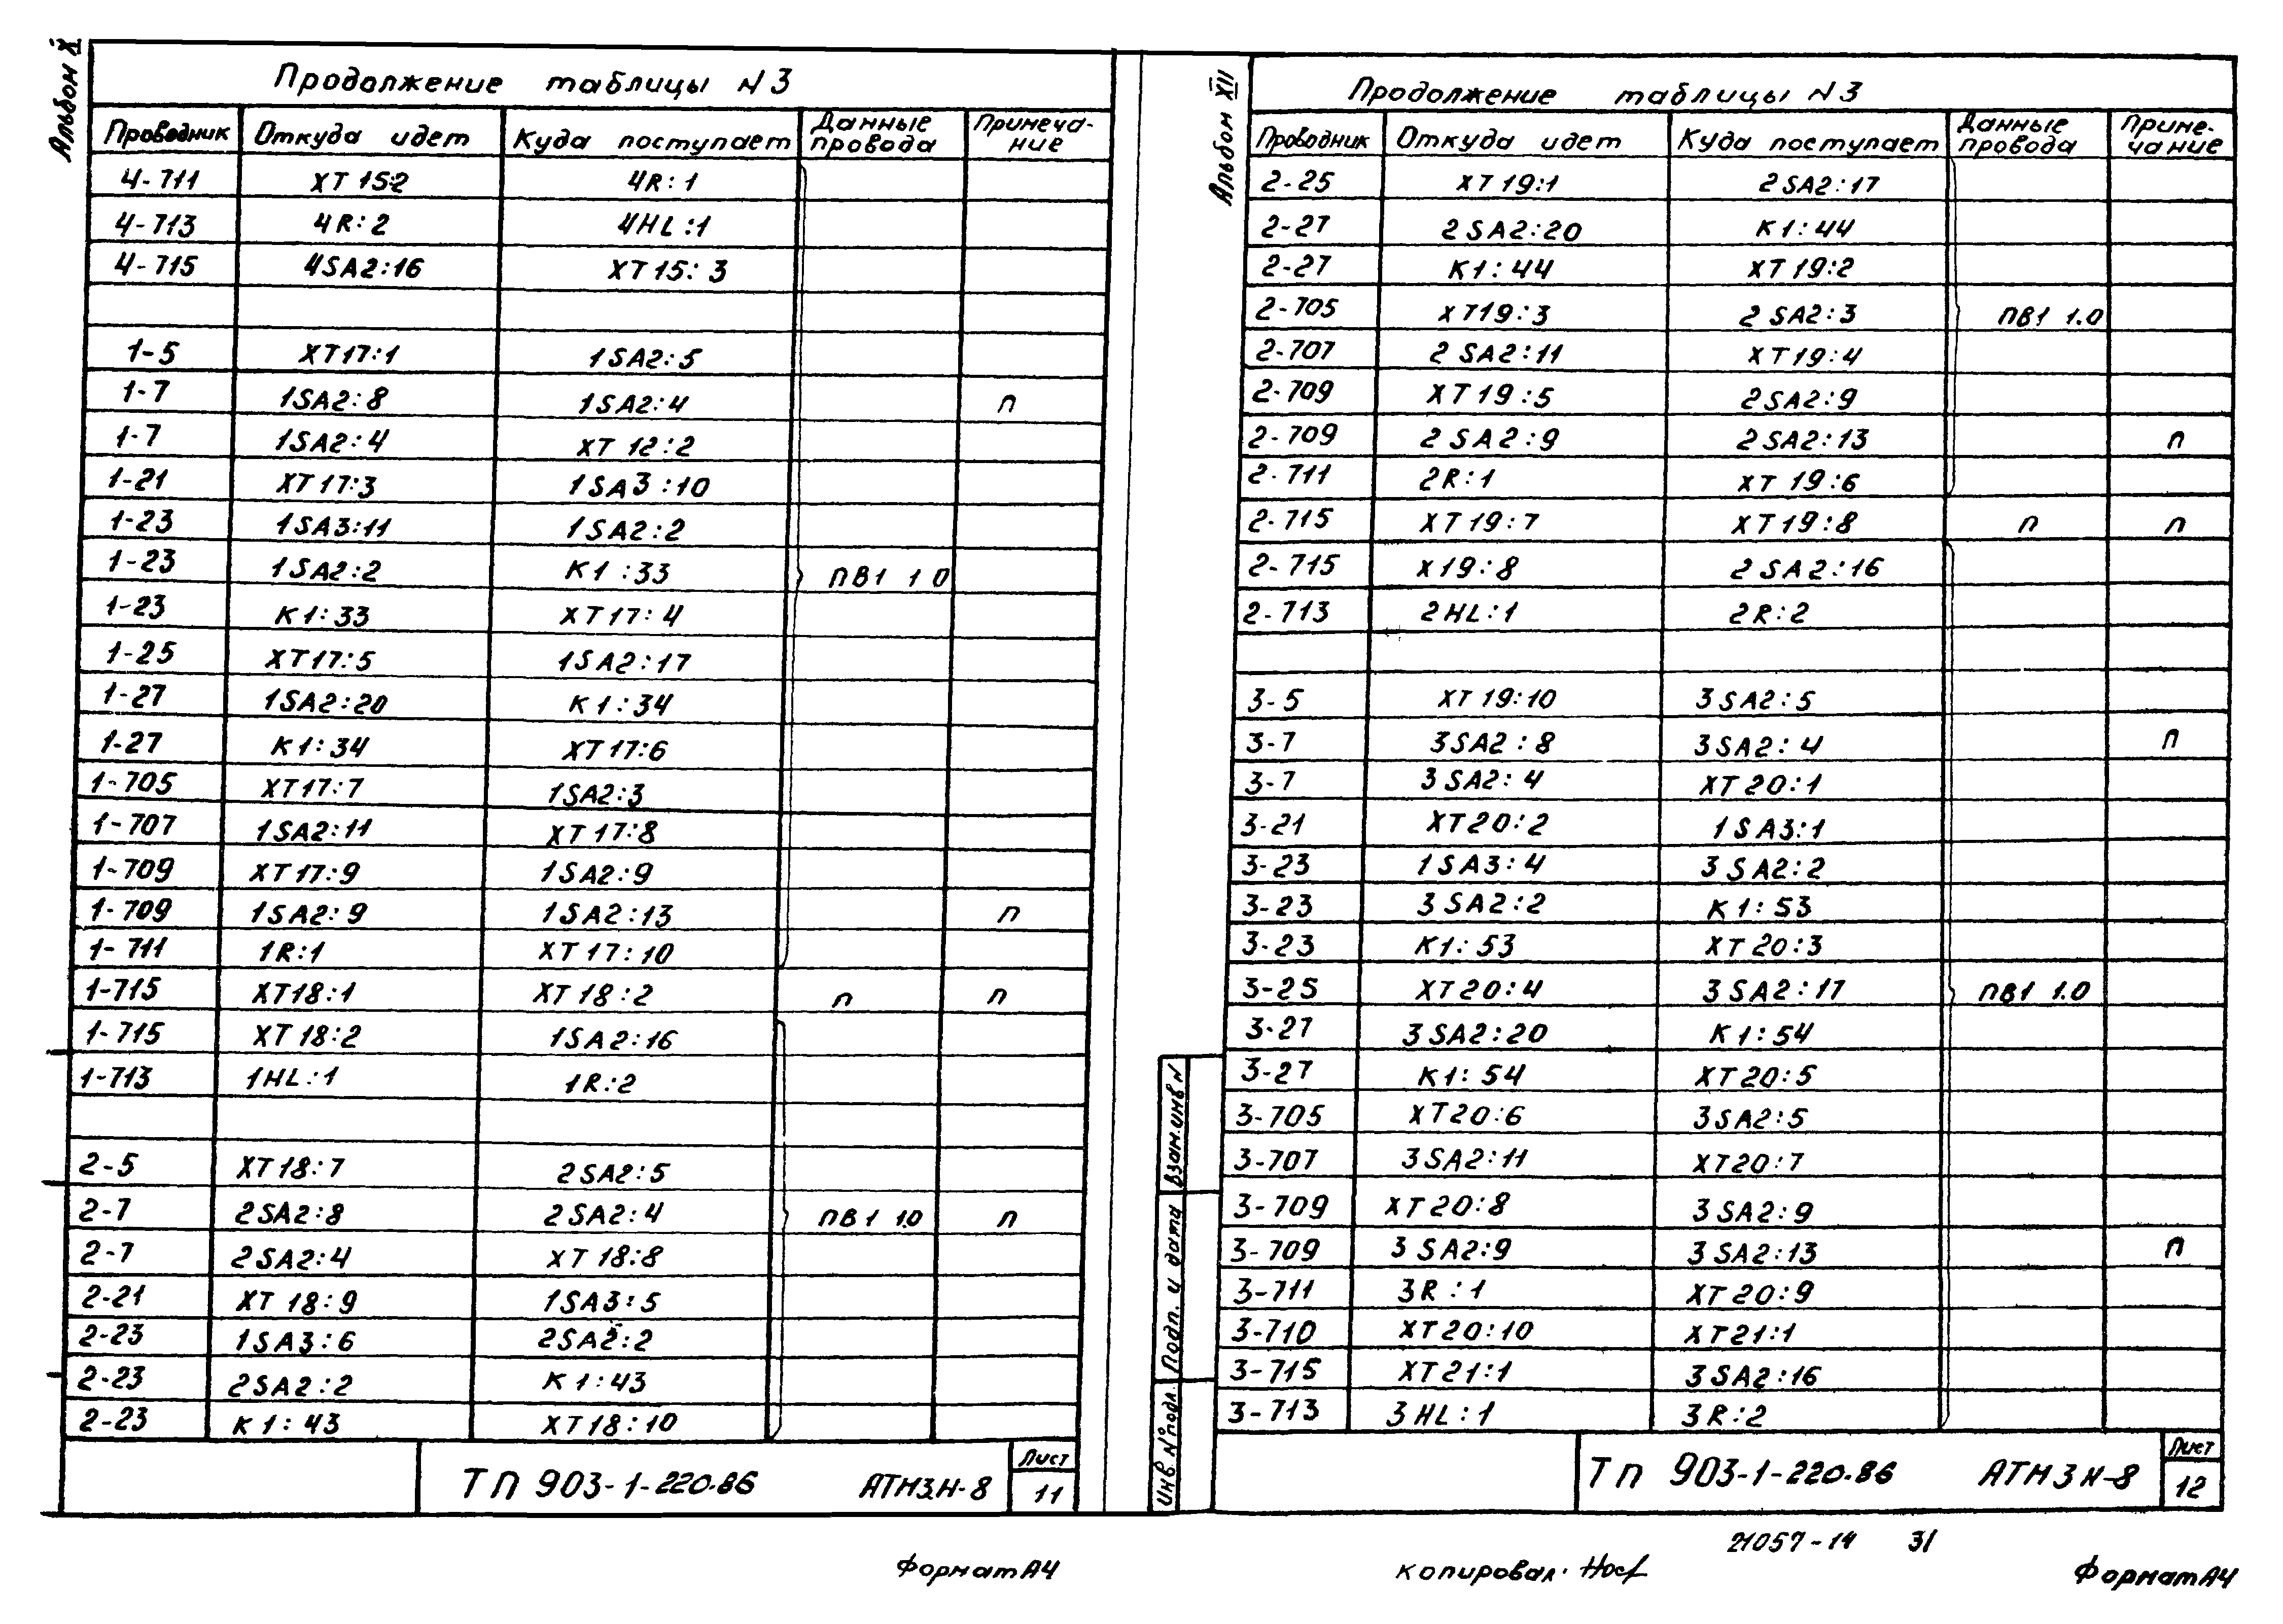 Альбом X
Продолжение таблицы N 3
Проводник Откуда идет Куда поступает Данные провода Примечание
4-711 XT 15:2 4R:1
4-713 4R:2 4HL:1
4-715 4SA2:16 XT15:3
1-5 XT17:1 1SA2:5
1-7 1SA2:8 1SA2:4 п
1-7 1SA2:4 XT 12:2
1-21 XT17:3 1SA3:10
1-23 1SA3:11 1SA2:2
1-23 1SA2:2 K1:33 ПВ1 1 0
1-23 K1:33 XT17:4
1-25 XT17:5 1SA2:17
1-27 1SA2:20 K1:34
1-27 K1:34 XT17:6
1-705 XT17:7 1SA2:3
1-707 1SA2:11 XT17:8
1-709 XT17:9 1SA2:9
1-709 1SA2:9 1SA2:13 п
1-711 1R:1 XT17:10
1-715 XT18:1 XT18:2 п п
1-715 XT18:2 1SA2:16
1-713 1HL:1 1R:2
2-5 XT18:7 2SA2:5
2-7 2SA2:8 2SA2:4 ПВ1 1.0 п
2-7 2SA2:4 XT18:8
2-21 XT18:9 1SA3:5
2-23 1SA3:6 2SA2:2
2-23 2SA2:2 K1:43
2-23 K1:43 XT18:10
ТП 903-1-220.86 АТМ3.Н-8 Лист 11
Формат А4
Альбом XII
Продолжение таблицы N 3
Проводник Откуда идет Куда поступает Данные провода Примечание
2-25 XT19:1 2SA2:17
2-27 2SA2:20 K1:44
2-27 K1:44 XT19:2
2-705 XT19:3 2SA2:3 ПВ1 1.0
2-707 2SA2:11 XT19:4
2-709 XT19:5 2SA2:9
2-709 2SA2:9 2SA2:13 п
2-711 2R:1 XT19:6
2-715 XT19:7 XT19:8 п п
2-715 X19:8 2SA2:16
2-713 2HL:1 2R:2
3-5 XT19:10 3SA2:5
3-7 3SA2:8 3SA2:4 п
3-7 3SA2:4 XT20:1
3-21 XT20:2 1SA3:1
3-23 1SA3:4 3SA2:2
3-23 3SA2:2 K1:53
3-23 K1:53 XT20:3
3-25 XT20:4 3SA2:17 ПВ1 1.0
3-27 3SA2:20 K1:54
3-27 K1:54 XT20:5
3-705 XT20:6 3SA2:5
3-707 3SA2:11 XT20:7
3-709 XT20:8 3SA2:9
3-709 3SA2:9 3SA2:13 п
3-711 3R:1 XT20:9
3-710 XT20:10 XT21:1
3-715 XT21:1 3SA2:16
3-713 3HL:1 3R:2
Взам.инв N
Подп. и дата
Инв. N°подл.
ТП 903-1-220.86 АТМ3 Н-8 Лист 12
21057-14 31
копировал.
Формат А4